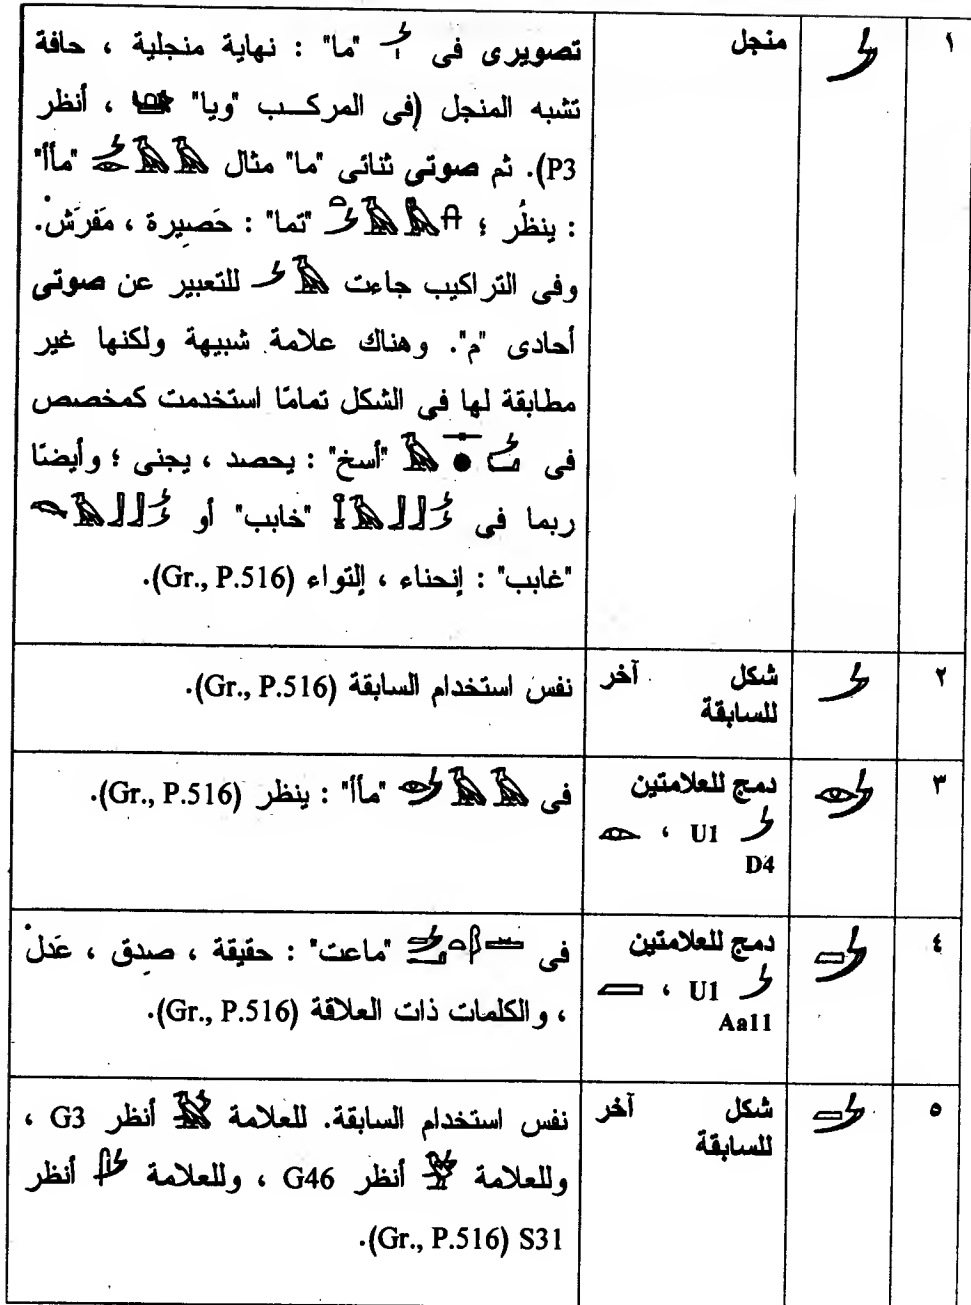 ١ 𓌳 منجل تصويرى فى 𓌳𓏤 "ما" : نهاية منجلية ، حافة
تشبه المنجل (فى المركب "ويا" ، أنظر
P3). ثم صوتى ثنائى "ما" مثال 𓌳𓁹𓄿𓄿 "مأأ"
: ينظُر ؛ "تما" : حَصيرة ، مَفرَشْ.
وفى التراكيب جاءت 𓌳𓅓 للتعبير عن صوتى
أحادى "م". وهناك علامة شبيهة ولكنها غير
مطابقة لها فى الشكل تمامًا استخدمت كمخصص
فى "أسخ" : يحصد ، يجنى ؛ وأيضًا
ربما فى "خابب" أو
"غابب" : إنحناء ، إلتواء (Gr., P.516).
٢ 𓌴 شكل آخر نفس استخدام السابقة (Gr., P.516).
للسابقة
٣ 𓌵 دمج للعلامتين فى 𓌵𓄿𓄿 "مأأ" : ينظر (Gr., P.516).
𓌳 U1 ، 𓁹
D4
٤ 𓌶 دمج للعلامتين فى "ماعت" : حقيقة ، صدق ، عَدلْ
𓌳 U1 ، 𓐙 ، والكلمات ذات العلاقة (Gr., P.516).
Aa11
٥ 𓌷 شكل آخر نفس استخدام السابقة. للعلامة 𓄿𓌳 أنظر G3 ،
للسابقة وللعلامة أنظر G46 ، وللعلامة أنظر
S31 (Gr., P.516).